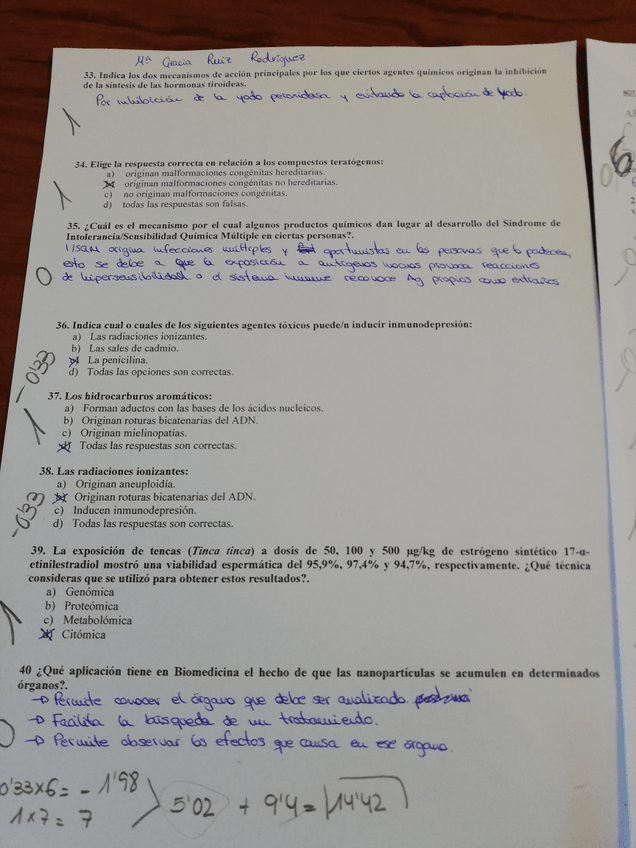 Mª Gracia Ruiz Rodríguez
33. Indica los dos mecanismos de acción principales por los que ciertos agentes químicos originan la inhibición
de la síntesis de las hormonas tiroideas.
Por inhibición de la yodo peroxidasa y evitando la captación de yodo.
1
34. Elige la respuesta correcta en relación a los compuestos teratógenos:
a) originan malformaciones congénitas hereditarias.
b) originan malformaciones congénitas no hereditarias.
c) no originan malformaciones congénitas.
d) todas las respuestas son falsas.
1
35. ¿Cuál es el mecanismo por el cual algunos productos químicos dan lugar al desarrollo del Síndrome de
Intolerancia/Sensibilidad Química Múltiple en ciertas personas?.
origina infecciones múltiples y oportunistas en las personas que lo padecen,
esto se debe a que la exposición a antígenos inocuos provoca reacciones
de hipersensibilidad o el sistema inmune reconoce Ag propios como extraños.
0
36. Indica cual o cuales de los siguientes agentes tóxicos puede/n inducir inmunodepresión:
a) Las radiaciones ionizantes.
b) Las sales de cadmio.
c) La penicilina.
d) Todas las opciones son correctas.
-0'33
37. Los hidrocarburos aromáticos:
a) Forman aductos con las bases de los ácidos nucleicos.
b) Originan roturas bicatenarias del ADN.
c) Originan mielinopatías.
d) Todas las respuestas son correctas.
1
38. Las radiaciones ionizantes:
a) Originan aneuploidía.
b) Originan roturas bicatenarias del ADN.
c) Inducen inmunodepresión.
d) Todas las respuestas son correctas.
-0'33
39. La exposición de tencas (Tinca tinca) a dosis de 50, 100 y 500 µg/kg de estrógeno sintético 17-α-
etinilestradiol mostró una viabilidad espermática del 95,9%, 97,4% y 94,7%, respectivamente. ¿Qué técnica
consideras que se utilizó para obtener estos resultados?.
a) Genómica
b) Proteómica
c) Metabolómica
d) Citómica
1
40 ¿Qué aplicación tiene en Biomedicina el hecho de que las nanopartículas se acumulen en determinados
órganos?.
→ Permite conocer el órgano que debe ser analizado
→ Facilita la búsqueda de un tratamiento.
→ Permite observar los efectos que causa en ese órgano.
0
0'33x6 = - 1'98
1x7 = 7
5'02 + 9'4 = 14'42